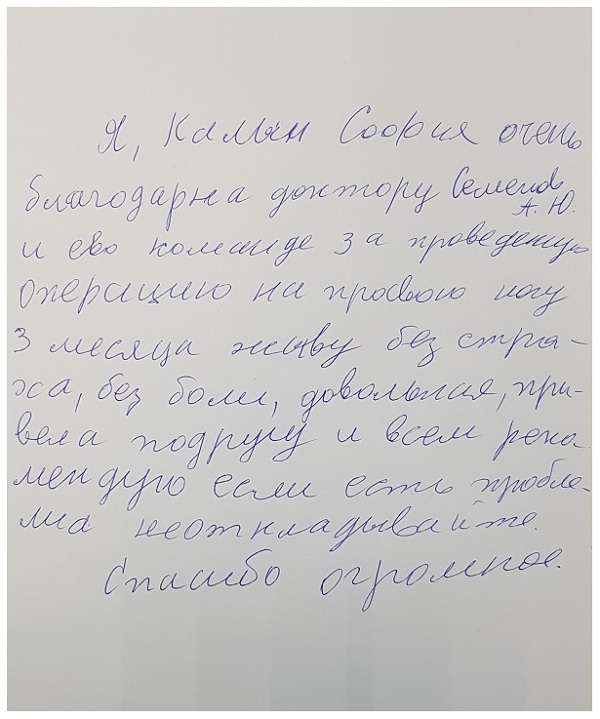 Я, Калын София очень
благодарна доктору Семенов
А.Ю.
и ево команде за проведеную
операцию на провою ногу
3 месяца живу без стра-
ха, без боли, довольная, при-
вела подругу и всем река
мендую если есть пробле-
ма неоткладывайте.
Спасибо огромное.